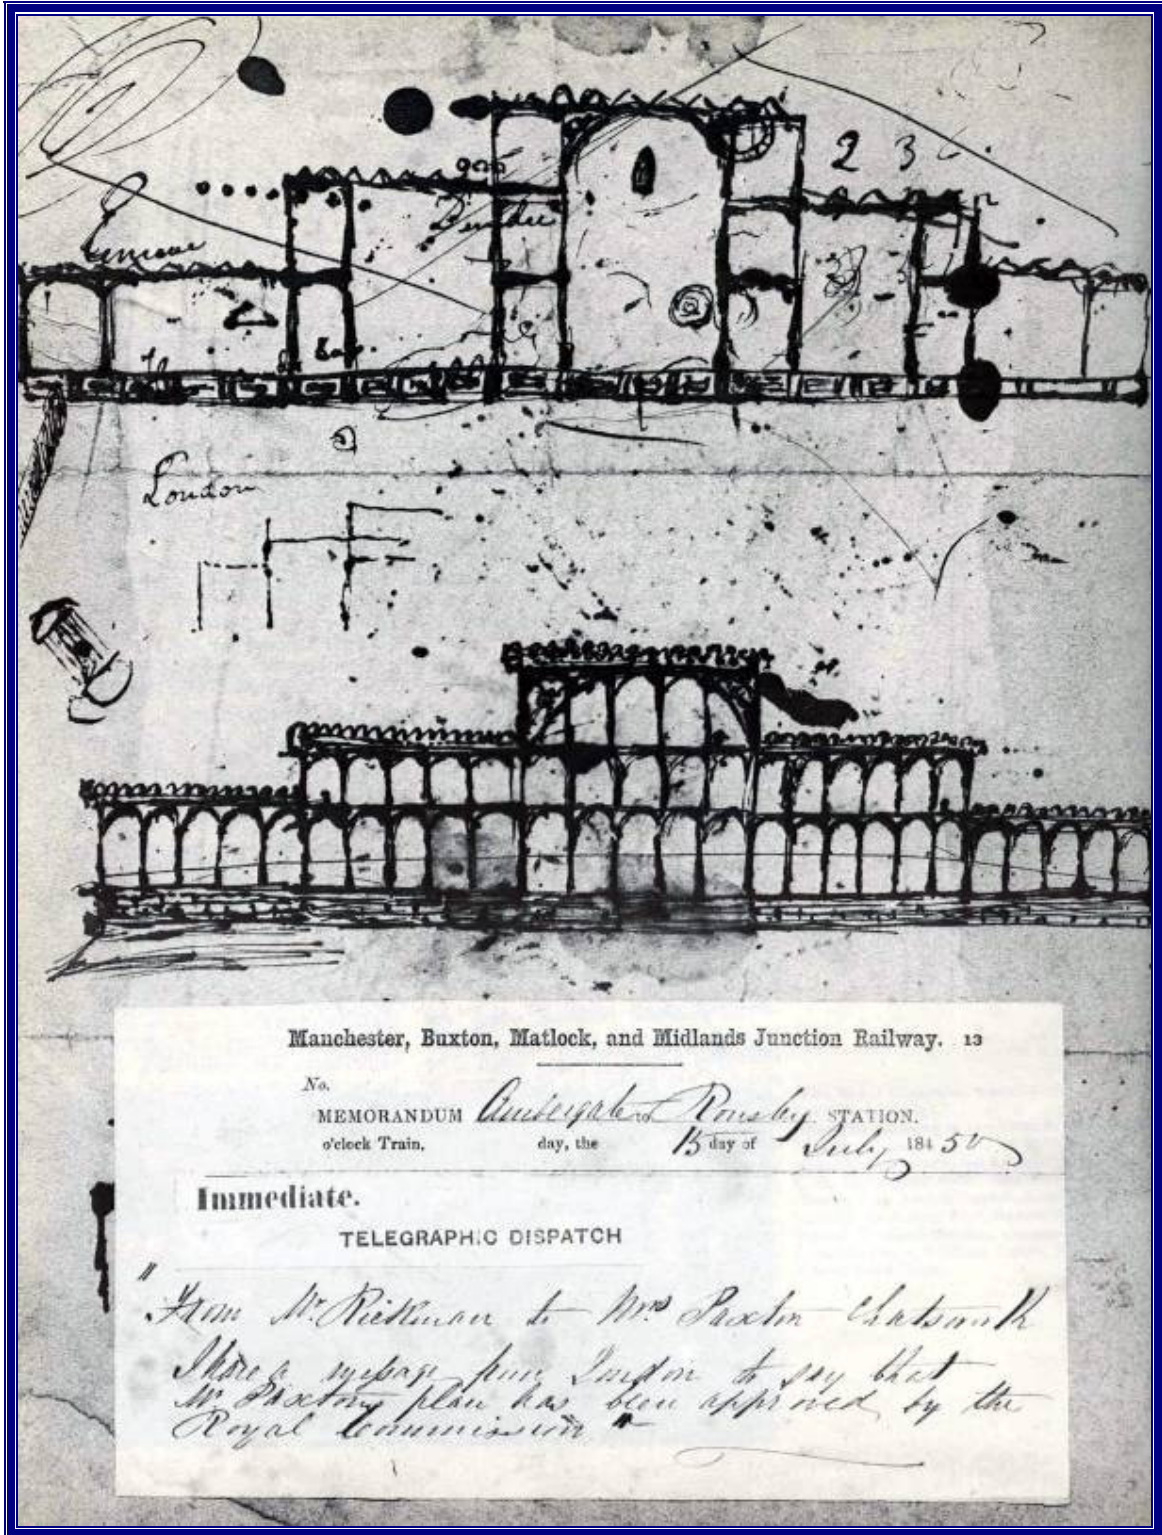 2 3
London
Manchester, Buxton, Matlock, and Midlands Junction Railway. 13
No.
MEMORANDUM Ambergate to Rowsley STATION.
o'clock Train, day, the 15 day of July 184 50
Immediate.
TELEGRAPHIC DISPATCH
"From Mr Rickman to Mrs Paxton Chatsworth
I have a message from London to say that
Mr Paxtons plan has been approved by the
Royal Commission"